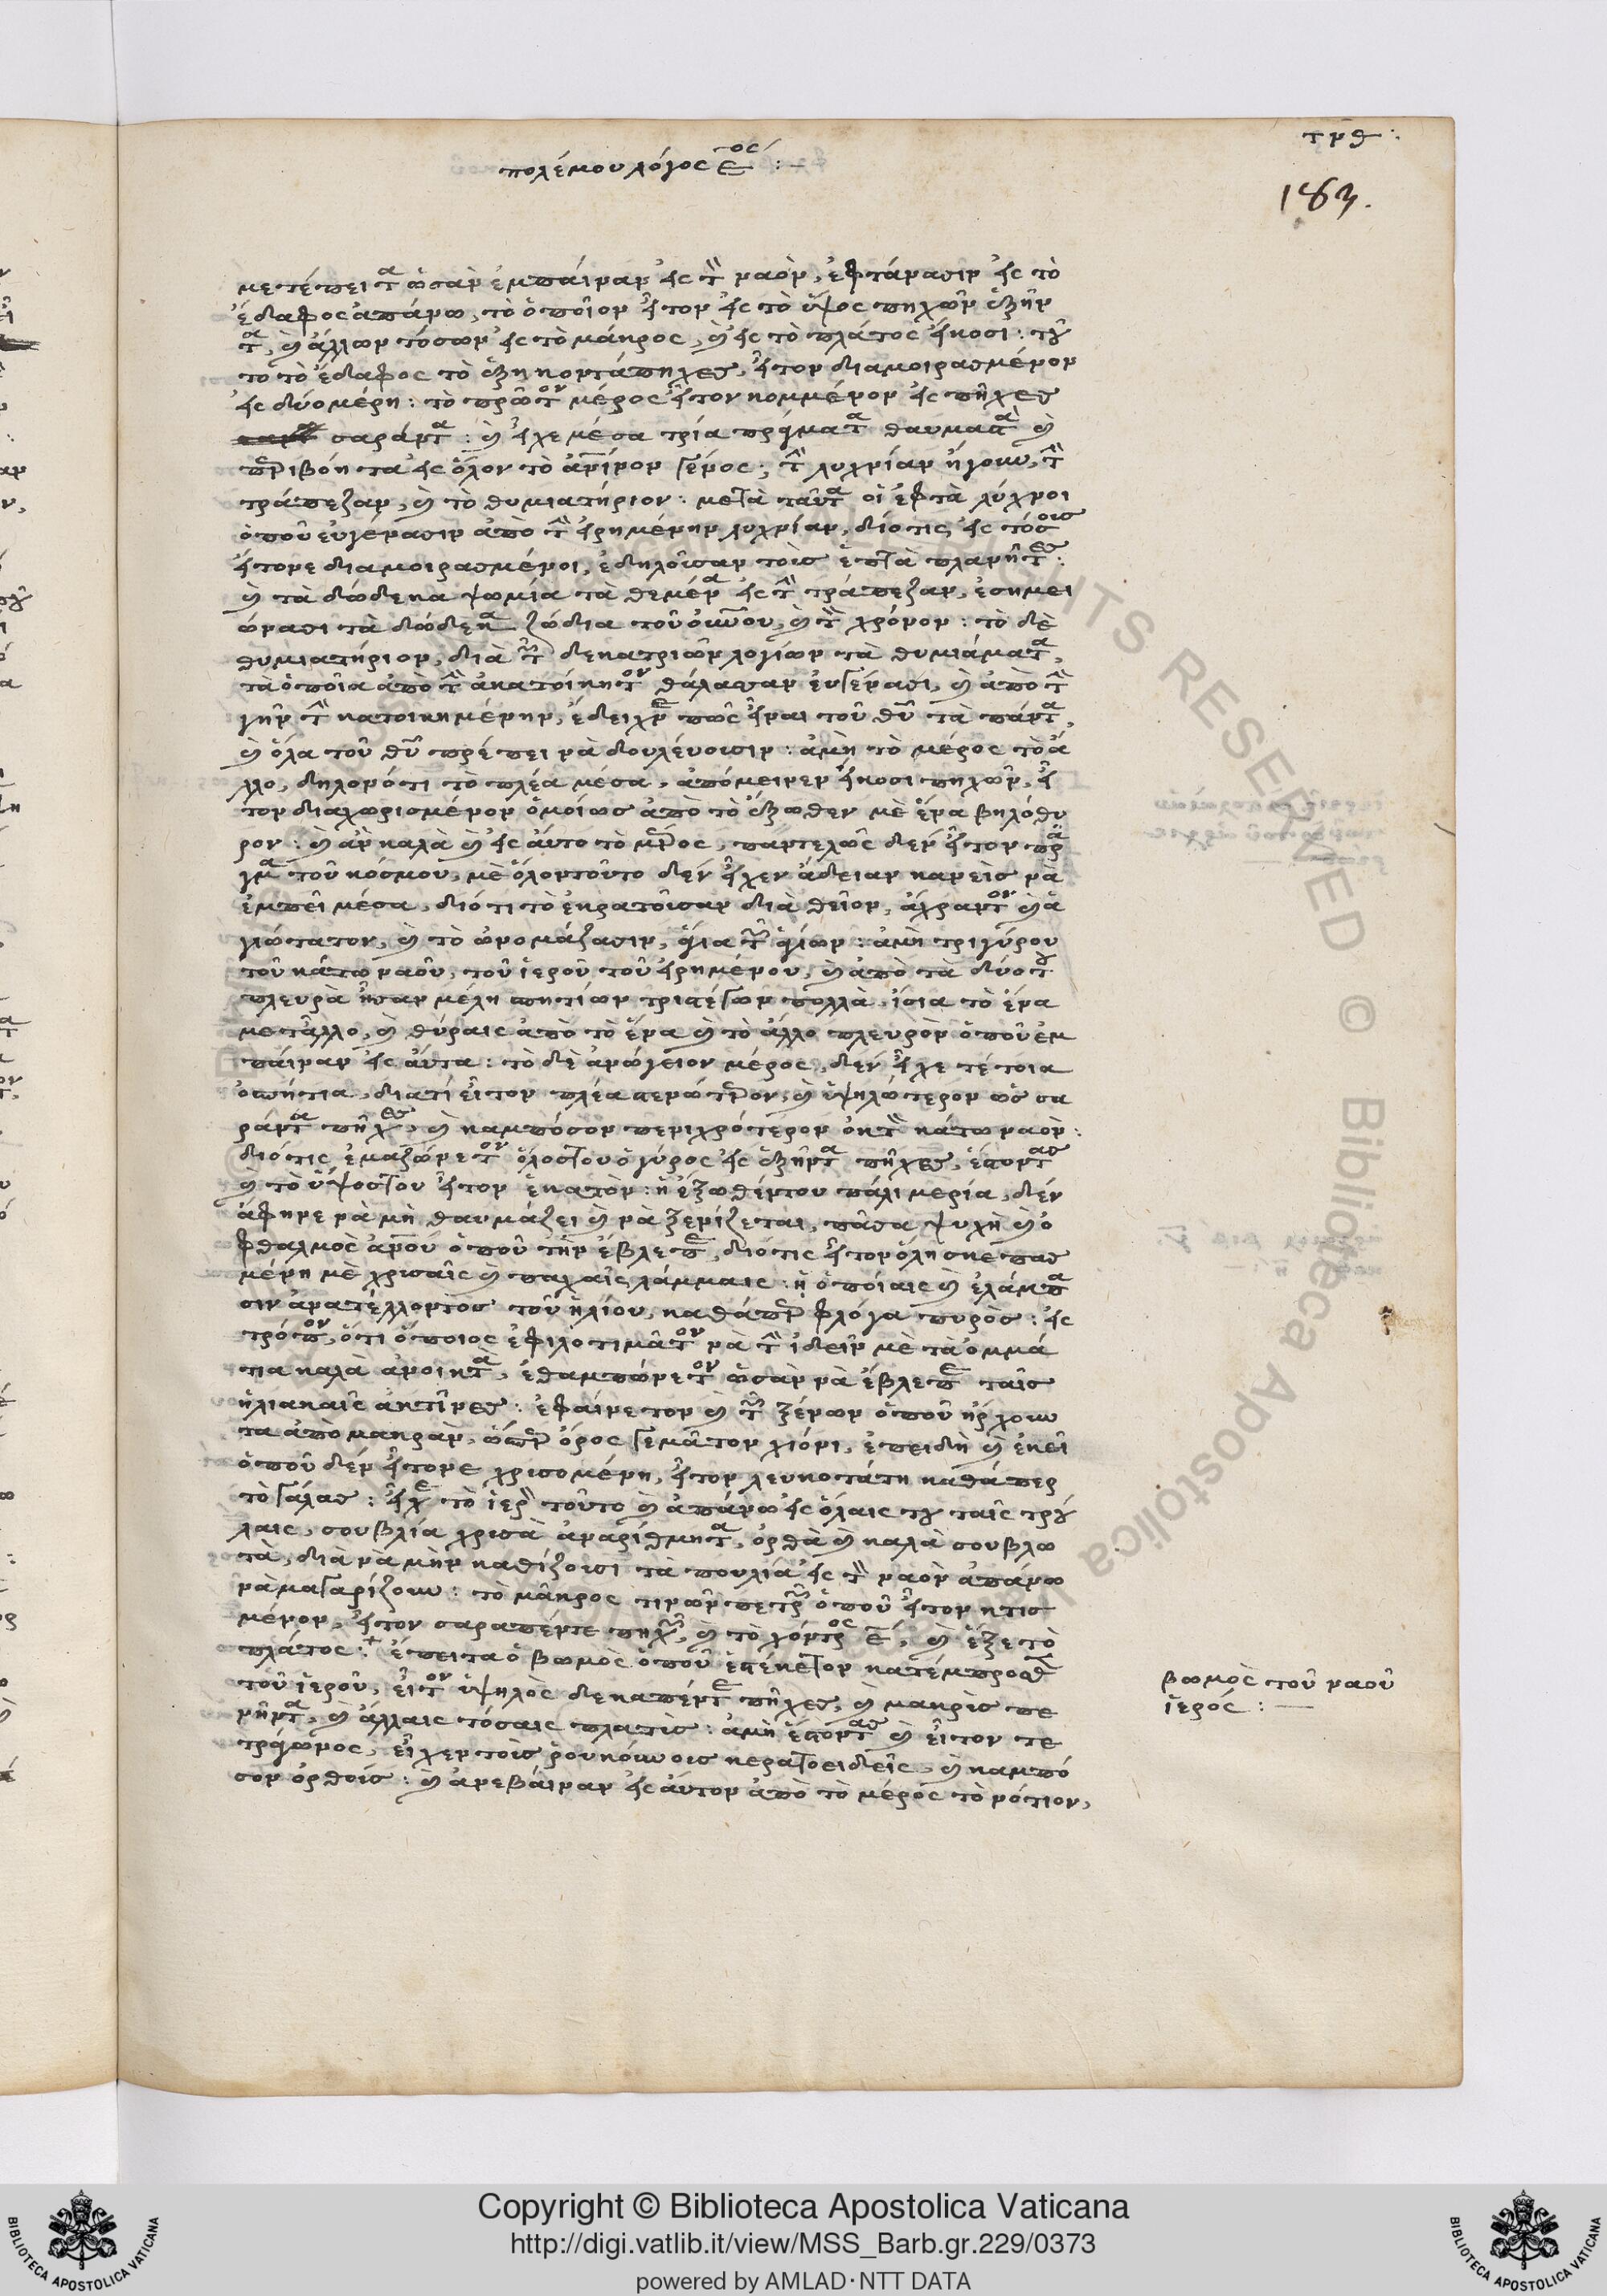 τρθ :
πολέμου λόγος ε^ος :–
183.
μετέπειτα ὡσὰν ἐμπάιναν εἰς τὸν ναὸν, ἐφτάνασιν εἰς τὸ
ἔδαφος ἀπάνω, τὸ ὁποῖον εἶτον εἰς τὸ ὕψος πηχῶν ἑξῆν
τα, καὶ ἄλλων τόσων εἰς τὸ μάκρος, καὶ εἰς τὸ πλάτος εἴκοσι : τοῦ
το τὸ ἔδαφος τὸ ἑξηκοντάπηχες, εἶτον διαμοιρασμένον
εἰς δύο μέρη : τὸ πρῶτον μέρος εἶτον κομμένον εἰς πῆχες
σαράντα : καὶ εἶχε μέσα τρία πράγματα θαυμαστὰ καὶ
περιβόητα εἰς ὅλον τὸ ἀνθρώπινον γένος ; τὴν λυχνίαν ἤγουν, τὴν
τράπεζαν, καὶ τὸ θυμιατήριον : μετὰ ταῦτα οἱ ἑφτὰ λύχνοι
ὁποῦ εὐγένασιν ἀπὸ τὴν εἰρημένην λυχνίαν, διότις εἰς τόσους
εἴτονε διαμοιρασμένοι, ἐδηλοῖσαν τοῖς ἑπτὰ πλανῆτες :
καὶ τὰ δώδεκα ψωμία τὰ θεμένα εἰς τὴν τράπεζαν, ἐσημει
ώνασι τὰ δώδεκα ζώδια τοῦ οὐρανοῦ, καὶ τὸν χρόνον : τὸ δὲ
θυμιατήριον, διὰ τῶν δεκατριῶν λογίων τὰ θυμιάματα,
τὰ ὁποῖα ἀπὸ τὴν ἀκατοίκητον θάλασσαν εὐγένασι, καὶ ἀπὸ τὴν
γῆν τὴν κατοικημένην, ἔδειχνε πῶς εἶναι τοῦ θεοῦ τὰ πάντα,
καὶ ὅλα τοῦ θεοῦ πρέπει νὰ δουλέυοισιν : ἀμὴ τὸ μέρος τὸ ἄ
λλο, δηλονότι τὸ πλέα μέσα, ἀπόμεινεν εἴκοσι πηχῶν, εἶ
τον διαχωρισμένον ὁμοίως ἀπὸ τὸ ἔξωθεν μὲ ἕνα βηλόθυ
ρον : καὶ ἂν καλὰ καὶ εἰς ἀυτο τὸ μέρος, παντελῶς δεν εἶτον πρᾶ
γμα τοῦ κόσμου, μὲ ὅλοντοῦτο δέν εἶχεν ἄδειαν κανεὶς νὰ
ἐμπεῖ μέσα, διότι τὸ ἐκρατοῖσαν διὰ θεῖον, ἄχραντον καὶ ἁ
γιώτατον, καὶ τὸ ὠνομάζασιν, ἅγια τῶν ἁγίων : ἀμὴ τριγύρου
τοῦ κάτω ναοῦ, τοῦ ἱεροῦ τοῦ εἰρημένου, καὶ ἀπὸ τὰ δύοτου
πλευρὰ ἦσαν μέλη σπητίων τριστέγων πολλὰ, ἴσια τὸ ἕνα
με τἆλλο, καὶ θύραις ἀπὸ τὸ ἕνα καὶ τὸ ἄλλο πλευρὸν ὁποῦ ἐμ
πάιναν εἰς ἀύτα : τὸ δὲ ἀνώγειον μέρος, δέν εἶχε τέτοια
ὁσπήτια, διατί εἶτον πλέα στενώτερον, καὶ ὑψηλότερον ὡς σα
ράντα πῆχες, καὶ καμπόσον περιχρότερον ἐκ τὸν κάτω ναὸν :
διότις ἐμαζώνετον ὅλοστου ὁ γύρος εἰς ἑξῆντα πῆχες, ἔστοντας
καὶ τὸ ὕψοστου εἶτον ἑκατὸν : ἡ ἐξωθέντου πάλι μερία, δέν
ἀφηνε νὰ μὴ θαυμάζει καὶ νὰ ξενίζεται, πᾶσα ψυχὴ καὶ ὀ
φθαλμὸς ἀνθρώπου ὁποῦ τὴν ἔβλεπε, διότις εἶτον ὅλη σκεπασ
μένη μὲ χρισαῖς καὶ παχαῖς λάμμαις : ᾑ ὁποίαις καὶ ἐλάμπα
σιν ἀνατέλλοντος τοῦ ἡλίου, καθάπερ φλόγα πυρὸς : εἰς
τρόπον, ὅτι ὅποιος ἐφιλοτιμᾶτον νὰ τὴν ἰδεῖν μὲ τὰ ὀμμά
τια καλὰ ἀνοικτὰ, ἐθαμπώνετον ὡσὰν νὰ ἔβλεπε ταῖς
ἡλιακαῖς ἀκτῖνες : ἐφαίνετον καὶ τῶν ξένων ὁποῦ ἤρχουν
τα ἀπὸ μακρὰν, ὥσπερ ὄρος γεμᾶτον χιόνι, ἐπειδὴ καὶ ἐκεῖ
ὁποῦ δέν εἴτονε χρισομένη, εἶτον λευκοτάτη καθάπερ
τὸ γάλας : εἶχε τὸ ἱερὸν τοῦτο καὶ ἀπάνω εἰς ὅλαις του ταῖς τρού
λαις, σουβλία χρισὰ ἀναρίθμητα, ὀρθὰ καὶ καλὰ σουβλω
τὰ, διὰ να μὴν καθίζοισι τὰ πουλία εἰς τὸν ναὸν ἀπάνω
νὰ μαγαρίζουν : τὸ μᾶκρος τινῶν πετρῶν ὁποῦ εἶτον κτισ
μένον, εἶτον σαραπέντε πηχῶν, καὶ τὸ χόντρος ε, καὶ ἕξε τὸ
πλάτος :+ ἔπειτα ὁ βωμὸς ὁποῦ ἐστέκετον κατέμπροσθε
τοῦ ἱεροῦ, εἶτον ὑψηλος δεκαπέντε πῆχες, καὶ μακρὶς πε
νῆντα, καὶ ἄλλαις τόσαις πλατὶς : ἀμὴ ἔστοντας καὶ εἶτον τε
τράγωνος, εἶχεν τοῖς ῥουκούνους κερατοειδεῖς, καὶ καμπό
σον ὀρθοίς : καὶ ἀνεβάιναν εἰς ἀυτον ἀπὸ τὸ μέρος τὸ νότιον,
βωμὸς τοῦ ναοῦ
ἱερός : —
RIGHTS RESERVED © Biblioteca Apostolica
Copyright © Biblioteca Apostolica Vaticana
http://digi.vatlib.it/view/MSS_Barb.gr.229/0373
powered by AMLAD·NTT DATA
BIBLIOTECA APOSTOLICA VATICANA
BIBLIOTECA APOSTOLICA VATICANA